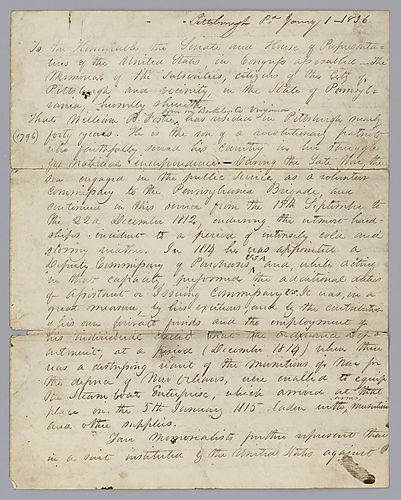 Pittsburgh Pa Janay 1 - 1836.
To the Honourable the Senate and House of Representa-
tives of the United States, in Congress assembled - The
Memorial of the Subscribers, citizens of the City of
Pittsburgh and vicinity, in the State of Pennsyl-
vania, humbly sheweth
from Berkeley Co Virginia
That William B. Foster has resided in Pittsburgh nearly
(1796) forty years. He is the son of a revolutionary patriot
who faithfully served his country in her struggle
for National independence. - During the late War, the
son engaged in the public service as a volunteer
Commissary to the Pennsylvania Brigade, and
continued in this service from the 19th September to
the 22d December 1812, enduring the utmost hard-
ships incident to a period of intensely cold and
stormy weather. In 1814 he was appointed a
USA
Deputy Commissary of Purchases and, while acting
in that capacity performed the additional duties
of assistant or Issuing Commissary US. It was, in a
great measure, by his exertions and by the
of his own private funds and the employment of
his individual credit that the ordnance de-
partment, at a period (December 1814) when there
was a distressing want of the munitions of War for
the defence of New Orleans, were enabled to equip
the Steam boat Enterprise, which arrived at that
arms,
place on the 5th January 1815 laden with munitions
and other supplies.
Your Memorialists further represent that
in a suit instituted by the United States against